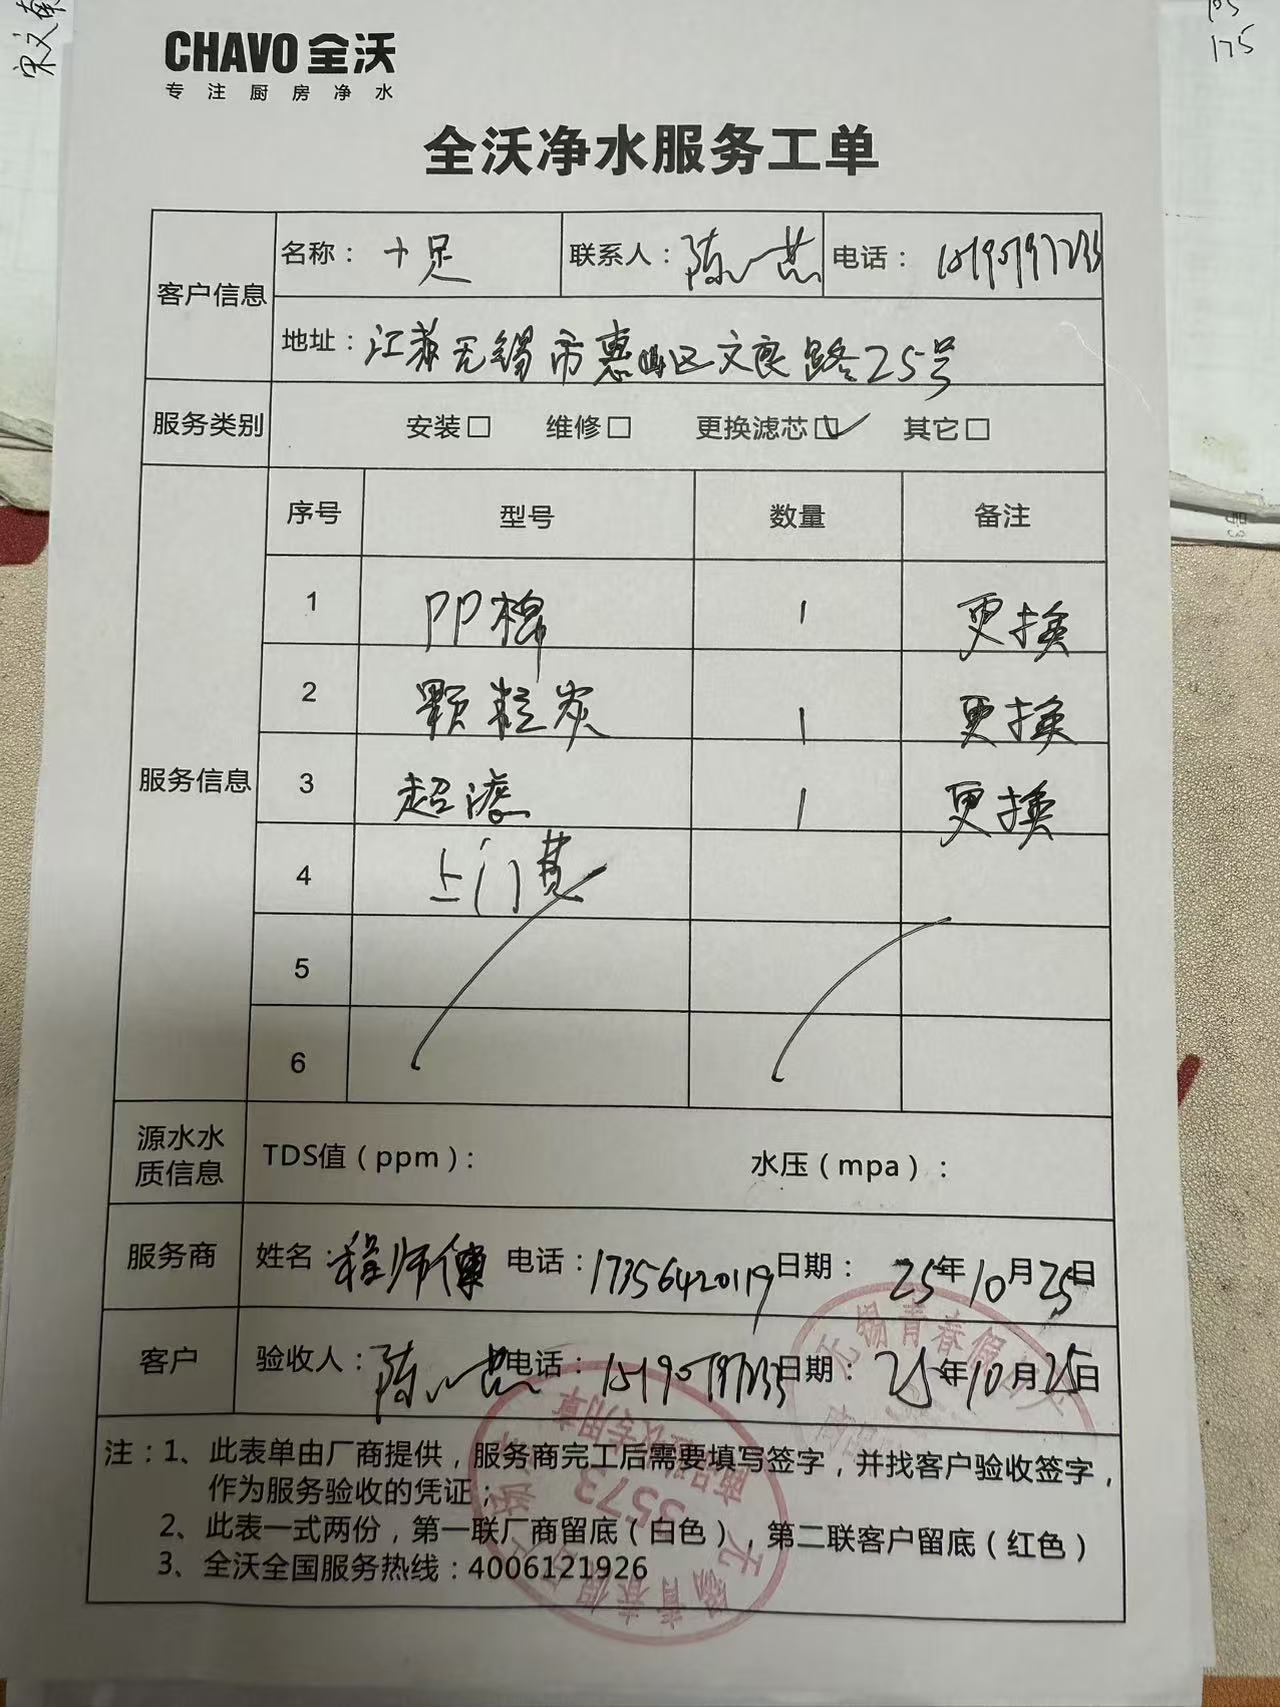 CHAVO 全沃
专注厨房净水
175
全沃净水服务工单
客户信息
名称：十足 联系人：陈 电话：15190197233
地址：江苏无锡市惠山区文良路25号
服务类别 安装□ 维修□ 更换滤芯☑ 其它□
服务信息
序号 型号 数量 备注
1 PP棉 1 更换
2 颗粒炭 1 更换
3 超滤 1 更换
4 上门费
5
6
源水水质信息 TDS值（ppm）： 水压（mpa）：
服务商 姓名：程师傅 电话：17356420119 日期：25年10月25日
客户 验收人：陈 电话：15190197233 日期：25年10月25日
注：1、此表单由厂商提供，服务商完工后需要填写签字，并找客户验收签字，
作为服务验收的凭证；
2、此表一式两份，第一联厂商留底（白色），第二联客户留底（红色）
3、全沃全国服务热线：4006121926
无锡青春假
3573